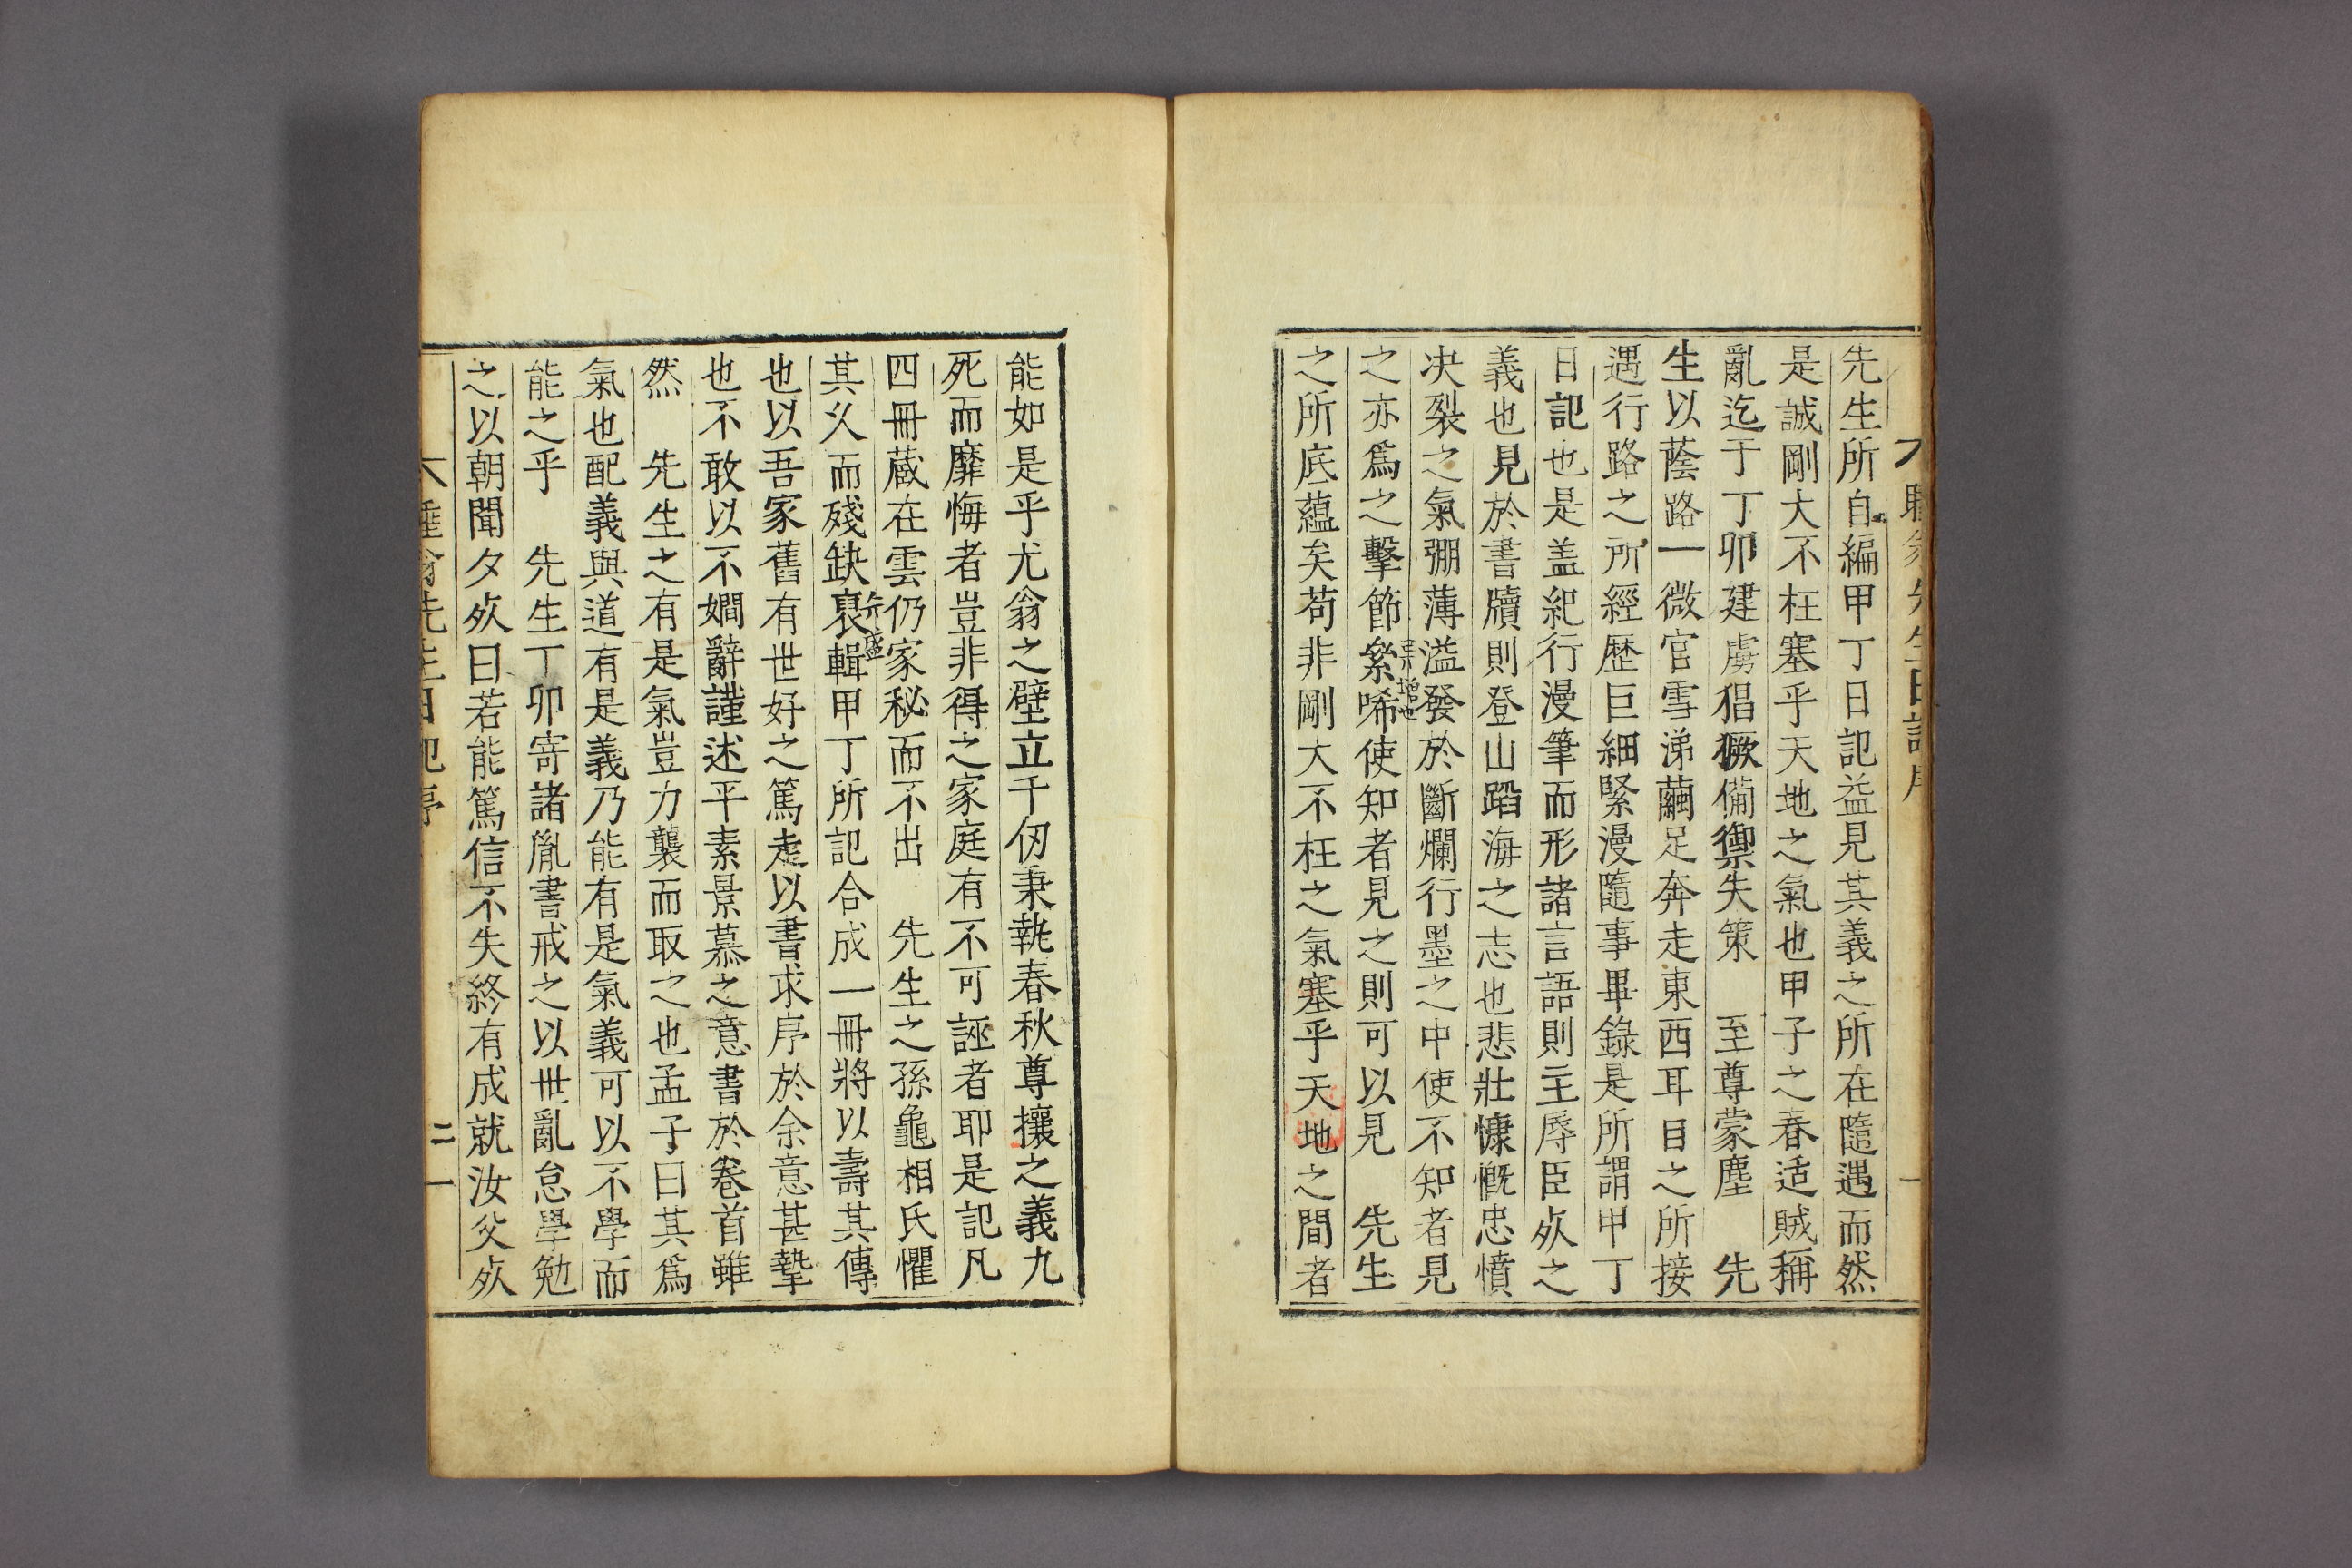 先生日記序
一
先生所自編甲丁日記益見其義之所在隨遇而然
是誠剛大不枉塞乎天地之氣也甲子之春适賊稱
亂迄于丁卯建虜猖獗備禦失策　至尊蒙塵　先
生以蔭路一微官雪涕繭足奔走東西耳目之所接
遇行路之所經歷巨細緊漫隨事畢錄是所謂甲丁
日記也是盖紀行漫筆而形諸言語則主辱臣㱁之
義也見於書牘則登山蹈海之志也悲壯慷慨忠憤
决裂之氣弸薄溢發於斷爛行墨之中使不知者見
之亦爲之擊節絫唏使知者見之則可以見　先生
之所底蘊矣苟非剛大不枉之氣塞乎天地之間者
能如是乎尤翁之壁立千仞秉執春秋尊攘之義九
死而靡悔者豈非得之家庭有不可誣者耶是記凡
四冊蔵在雲仍家秘而不出　先生之孫龜相氏懼
其久而殘缺裒輯甲丁所記合成一冊將以壽其傳
也以吾家舊有世好之篤走以書求序於余意甚摯
也不敢以不嫺辭謹述平素景慕之意書於卷首雖
然　先生之有是氣豈力襲而取之也孟子曰其爲
氣也配義與道有是義乃能有是氣義可以不學而
能之乎　先生丁卯寄諸胤書戒之以世亂怠學勉
之以朝聞夕㱁曰若能篤信不失終有成就汝父㱁
睡翁先生日記序
二
一